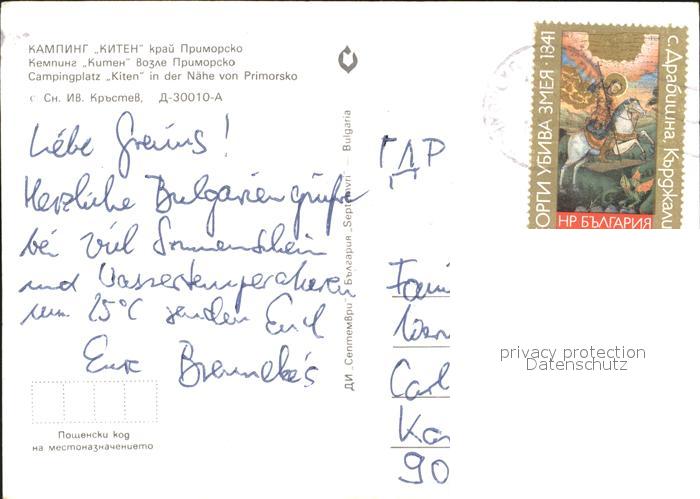 КАМПИНГ „КИТЕН" край Приморско
Кемпинг „Китен" возле Приморско
Campingplatz „Kiten" in der Nähe von Primorsko
Сн. Ив. Кръстев, Д-30010-А
Liebe
Herzliche Bulgariengrüße
bei viel Sonnenschein
und Wassertemperaturen
um 25°C senden Euch
Eure Brennekes
Пощенски код
на местоназначението
ДИ „Септември" България „Septemvri" — Bulgaria
ГДР
Fami
Wer
Carl
Ka
90
ОРГИ УБИВА ЗМЕЯ · 1841
с. Драбишна, Кърджали
НР БЪЛГАРИЯ
privacy protection
Datenschutz